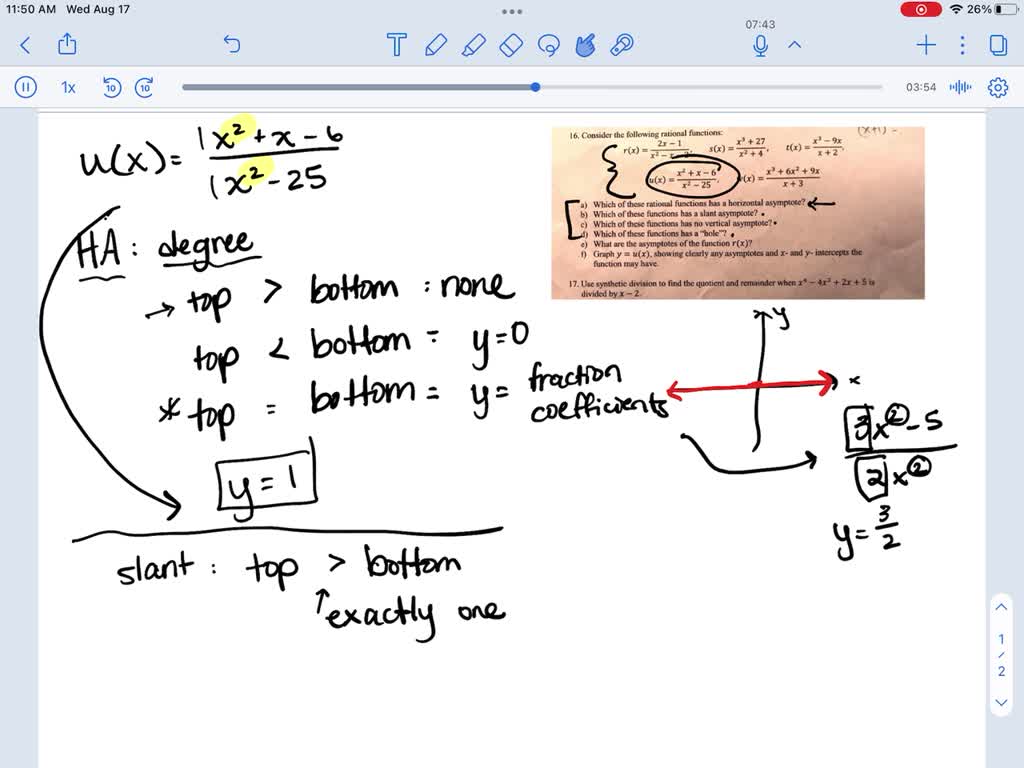 11:50 AM Wed Aug 17
26%
07:43
1x
10
10
03:54
u(x) = 1x² + x - 6 / 1x² - 25
HA : degree
→ top > bottom : none
top < bottom = y=0
* top = bottom = y = fraction coefficients
y = 1
slant : top > bottom
↑ exactly one
(x+1) =
16. Consider the following rational functions:
r(x) = 2x − 1 / x² − x − 2, s(x) = x³ + 27 / x² + 4, t(x) = x³ − 9x / x + 2,
u(x) = x² + x − 6 / x² − 25, v(x) = x³ + 6x² + 9x / x + 3
a) Which of these rational functions has a horizontal asymptote? ←
b) Which of these functions has a slant asymptote?
c) Which of these functions has no vertical asymptote?
d) Which of these functions has a "hole"?
e) What are the asymptotes of the function r(x)?
f) Graph y = u(x), showing clearly any asymptotes and x- and y- intercepts the
function may have.
17. Use synthetic division to find the quotient and remainder when x⁴ − 4x³ + 2x + 5 is
divided by x − 2.
y
x
3x² - 5 / 2x²
y = 3/2
1
/
2